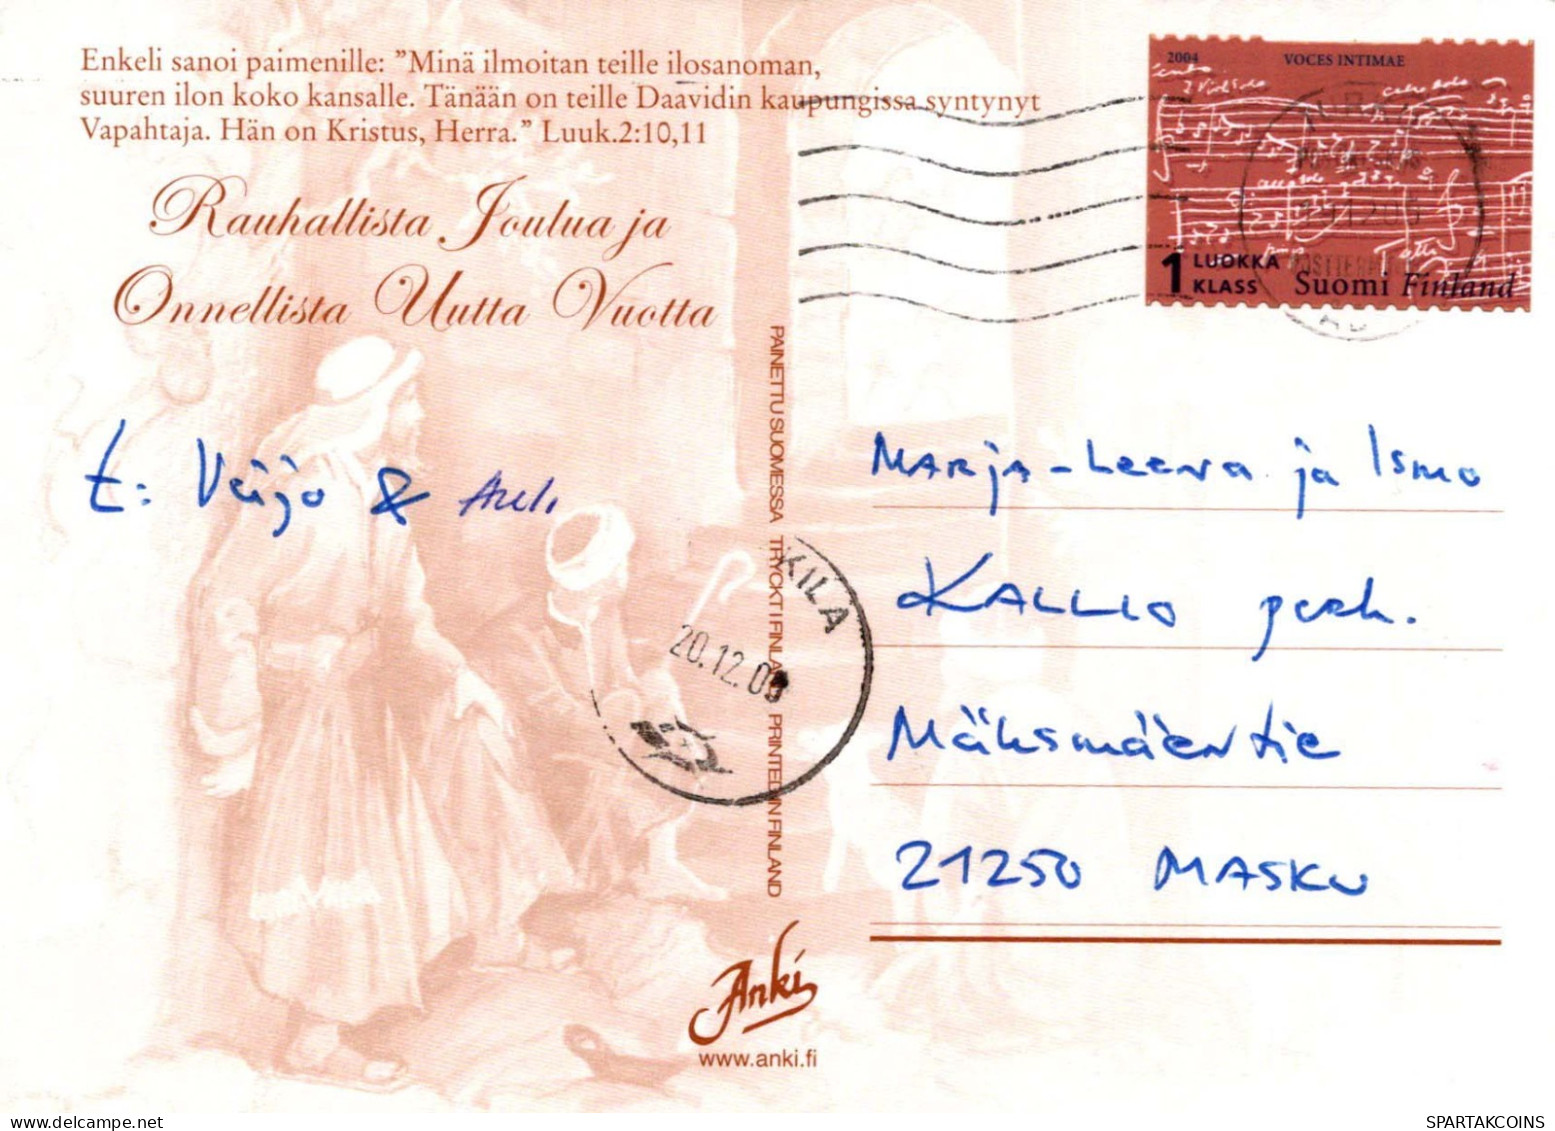 Enkeli sanoi paimenille: ”Minä ilmoitan teille ilosanoman,
suuren ilon koko kansalle. Tänään on teille Daavidin kaupungissa syntynyt
Vapahtaja. Hän on Kristus, Herra.” Luuk.2:10,11
Rauhallista Joulua ja
Onnellista Uutta Vuotta
2004 VOCES INTIMAE
1 LUOKKA
KLASS
Suomi Finland
t: Veijo & Auli
PAINETTU SUOMESSA TRYCKT I FINLAND PRINTED IN FINLAND
KILA
20.12.05
Marja-Leena ja Ismo
KALLIO perh.
Mäksmäentie
21250 MASKU
Anki
www.anki.fi
SPARTAKCOINS
www.delcampe.net